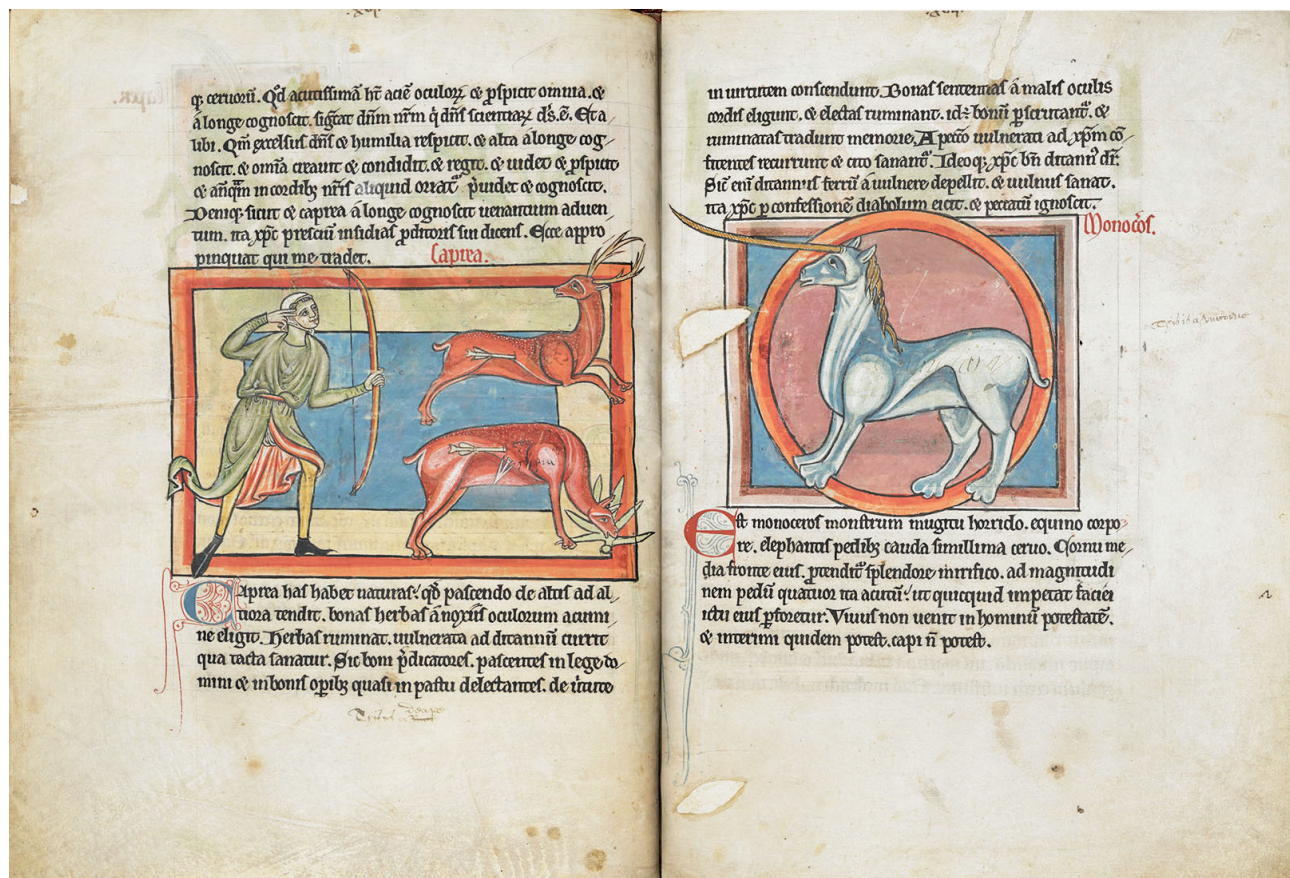 q; ceruorū. Qd acutissimā ht aciē oculoꝝ ⁊ ꝑspicit omnia. ⁊
á longe cognoscit. sigͭcat dn̄m nr̄m q̇ dn̄s scientiaꝝ ds̄. ē. Et a/
libi. Qm̄ excelsus dn̄s ⁊ humilia respicit. ⁊ alta álonge cog-
noscit. ⁊ om̄ia creauit ⁊ condidit. ⁊ regit. ⁊ uidet ⁊ ꝑspicit
⁊ in cordibꝫ nr̄is aliquid p̄uidet ⁊ cognoscit.
Deniqꝫ sicut ⁊ caprea á longe cognoscit uenantium aduen
tum. ita xp̄c presciuit insidias ꝓditoris sui dicens. Ecce appro
pinquat qui me tradet. Caprea.
Caprea has habet naturas. qd̄ pascendo de altis ad al/
tiora tendit. bonas herbas á noxiis oculorum acumi
ne eligit. Herbas ruminat. uulnerata ad ditannū currit
qua tacta sanatur. Sic boni p̄dicatores. pascentes in lege do/
mini ⁊ in bonis opibꝫ quasi in pastu delectantes. de uͥtute
in uirtutem conscendunt. Bonas sententias á malis oculis
cordis eligunt. ⁊ electas ruminant. id ÷ bonū ꝑscrutant᷑. ⁊
ruminatas tradunt memorie. A pecc̄o uulnerata ad xp̄m cō/
fitentes recurrunt ⁊ cito sanant᷑. Ideoqꝫ xp̄c bn̄ ditann᷒ dr̄.
Sic eni ditannus ferrū á uulnere depellit. ⁊ uulnus sanat.
ita xp̄c ꝑ confessionē diabolum eicit. ⁊ peccatū ignoscit.
Monoc̄os.
Est monoceros monstrum mugitu horrido. equino corpo
re. elephantis pedibꝫ cauda simillima ceruo. Cornu me/
dia fronte eius. ꝓtendit᷑ splendore mirifico. ad magnitudi
nem pedū quatuor ita acutū. ut quicquid impetat faciei
ictu eius ꝑforetur. Viuus non uenit in hominū potestatē.
⁊ interimi quidem potest. capi n̄ potest.